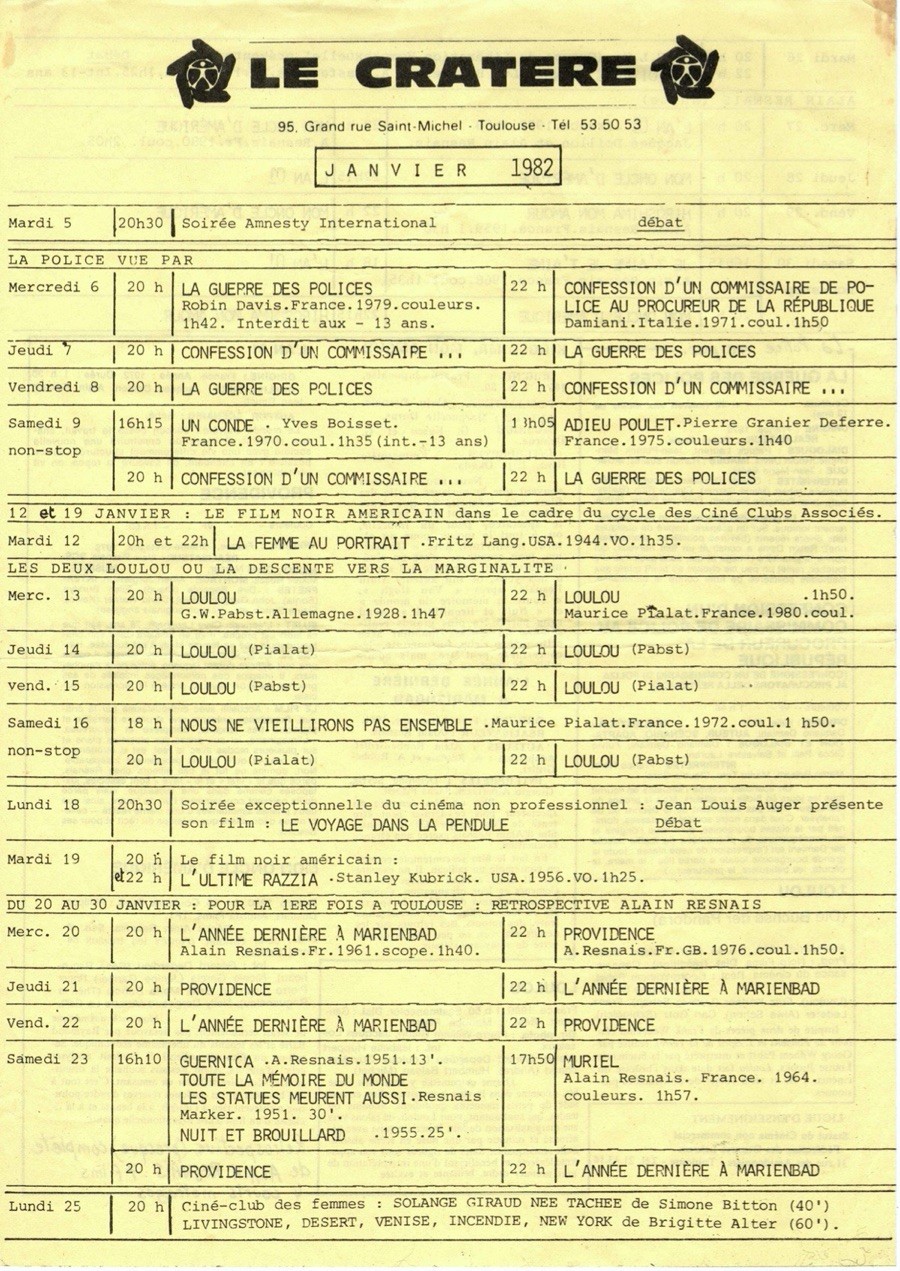 LE CRATERE
95, Grand rue Saint-Michel - Toulouse - Tél 53 50 53
JANVIER 1982
Mardi 5 20h30 Soirée Amnesty International débat
LA POLICE VUE PAR
Mercredi 6 20 h LA GUERRE DES POLICES 22 h CONFESSION D'UN COMMISSAIRE DE PO-
Robin Davis.France.1979.couleurs. LICE AU PROCUREUR DE LA RÉPUBLIQUE
1h42. Interdit aux - 13 ans. Damiani.Italie.1971.coul.1h50
Jeudi 7 20 h CONFESSION D'UN COMMISSAIRE ... 22 h LA GUERRE DES POLICES
Vendredi 8 20 h LA GUERRE DES POLICES 22 h CONFESSION D'UN COMMISSAIRE ...
Samedi 9 16h15 UN CONDE . Yves Boisset. 18h05 ADIEU POULET.Pierre Granier Deferre.
non-stop France.1970.coul.1h35(int.-13 ans) France.1975.couleurs.1h40
20 h CONFESSION D'UN COMMISSAIRE ... 22 h LA GUERRE DES POLICES
12 et 19 JANVIER : LE FILM NOIR AMERICAIN dans le cadre du cycle des Ciné Clubs Associés.
Mardi 12 20h et 22h LA FEMME AU PORTRAIT .Fritz Lang.USA.1944.VO.1h35.
LES DEUX LOULOU OU LA DESCENTE VERS LA MARGINALITE
Merc. 13 20 h LOULOU 22 h LOULOU .1h50.
G.W.Pabst.Allemagne.1928.1h47 Maurice Pialat.France.1980.coul.
Jeudi 14 20 h LOULOU (Pialat) 22 h LOULOU (Pabst)
vend. 15 20 h LOULOU (Pabst) 22 h LOULOU (Pialat)
Samedi 16 18 h NOUS NE VIEILLIRONS PAS ENSEMBLE .Maurice Pialat.France.1972.coul.1 h50.
non-stop 20 h LOULOU (Pialat) 22 h LOULOU (Pabst)
Lundi 18 20h30 Soirée exceptionnelle du cinéma non professionnel : Jean Louis Auger présente
son film : LE VOYAGE DANS LA PENDULE Débat
Mardi 19 20 h Le film noir américain :
et 22 h L'ULTIME RAZZIA .Stanley Kubrick. USA.1956.VO.1h25.
DU 20 AU 30 JANVIER : POUR LA 1ERE FOIS A TOULOUSE : RETROSPECTIVE ALAIN RESNAIS
Merc. 20 20 h L'ANNÉE DERNIÈRE À MARIENBAD 22 h PROVIDENCE
Alain Resnais.Fr.1961.scope.1h40. A.Resnais.Fr.GB.1976.coul.1h50.
Jeudi 21 20 h PROVIDENCE 22 h L'ANNÉE DERNIÈRE À MARIENBAD
Vend. 22 20 h L'ANNÉE DERNIÈRE À MARIENBAD 22 h PROVIDENCE
Samedi 23 16h10 GUERNICA .A.Resnais.1951.13'. 17h50 MURIEL
TOUTE LA MÉMOIRE DU MONDE Alain Resnais. France. 1964.
LES STATUES MEURENT AUSSI.Resnais couleurs. 1h57.
Marker. 1951. 30'.
NUIT ET BROUILLARD .1955.25'.
20 h PROVIDENCE 22 h L'ANNÉE DERNIÈRE À MARIENBAD
Lundi 25 20 h Ciné-club des femmes : SOLANGE GIRAUD NEE TACHEE de Simone Bitton (40')
LIVINGSTONE, DESERT, VENISE, INCENDIE, NEW YORK de Brigitte Alter (60').